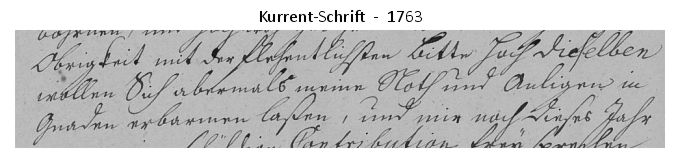 Kurrent-Schrift - 1763
Obrigkeit mit der flehentlichsten Bitte Hoch dieselben
wollen Sich abermals meine Noth und Anligen in
Gnaden erbarmen laßen, und mir noch dieses Jahr
Contribution frey sprechen